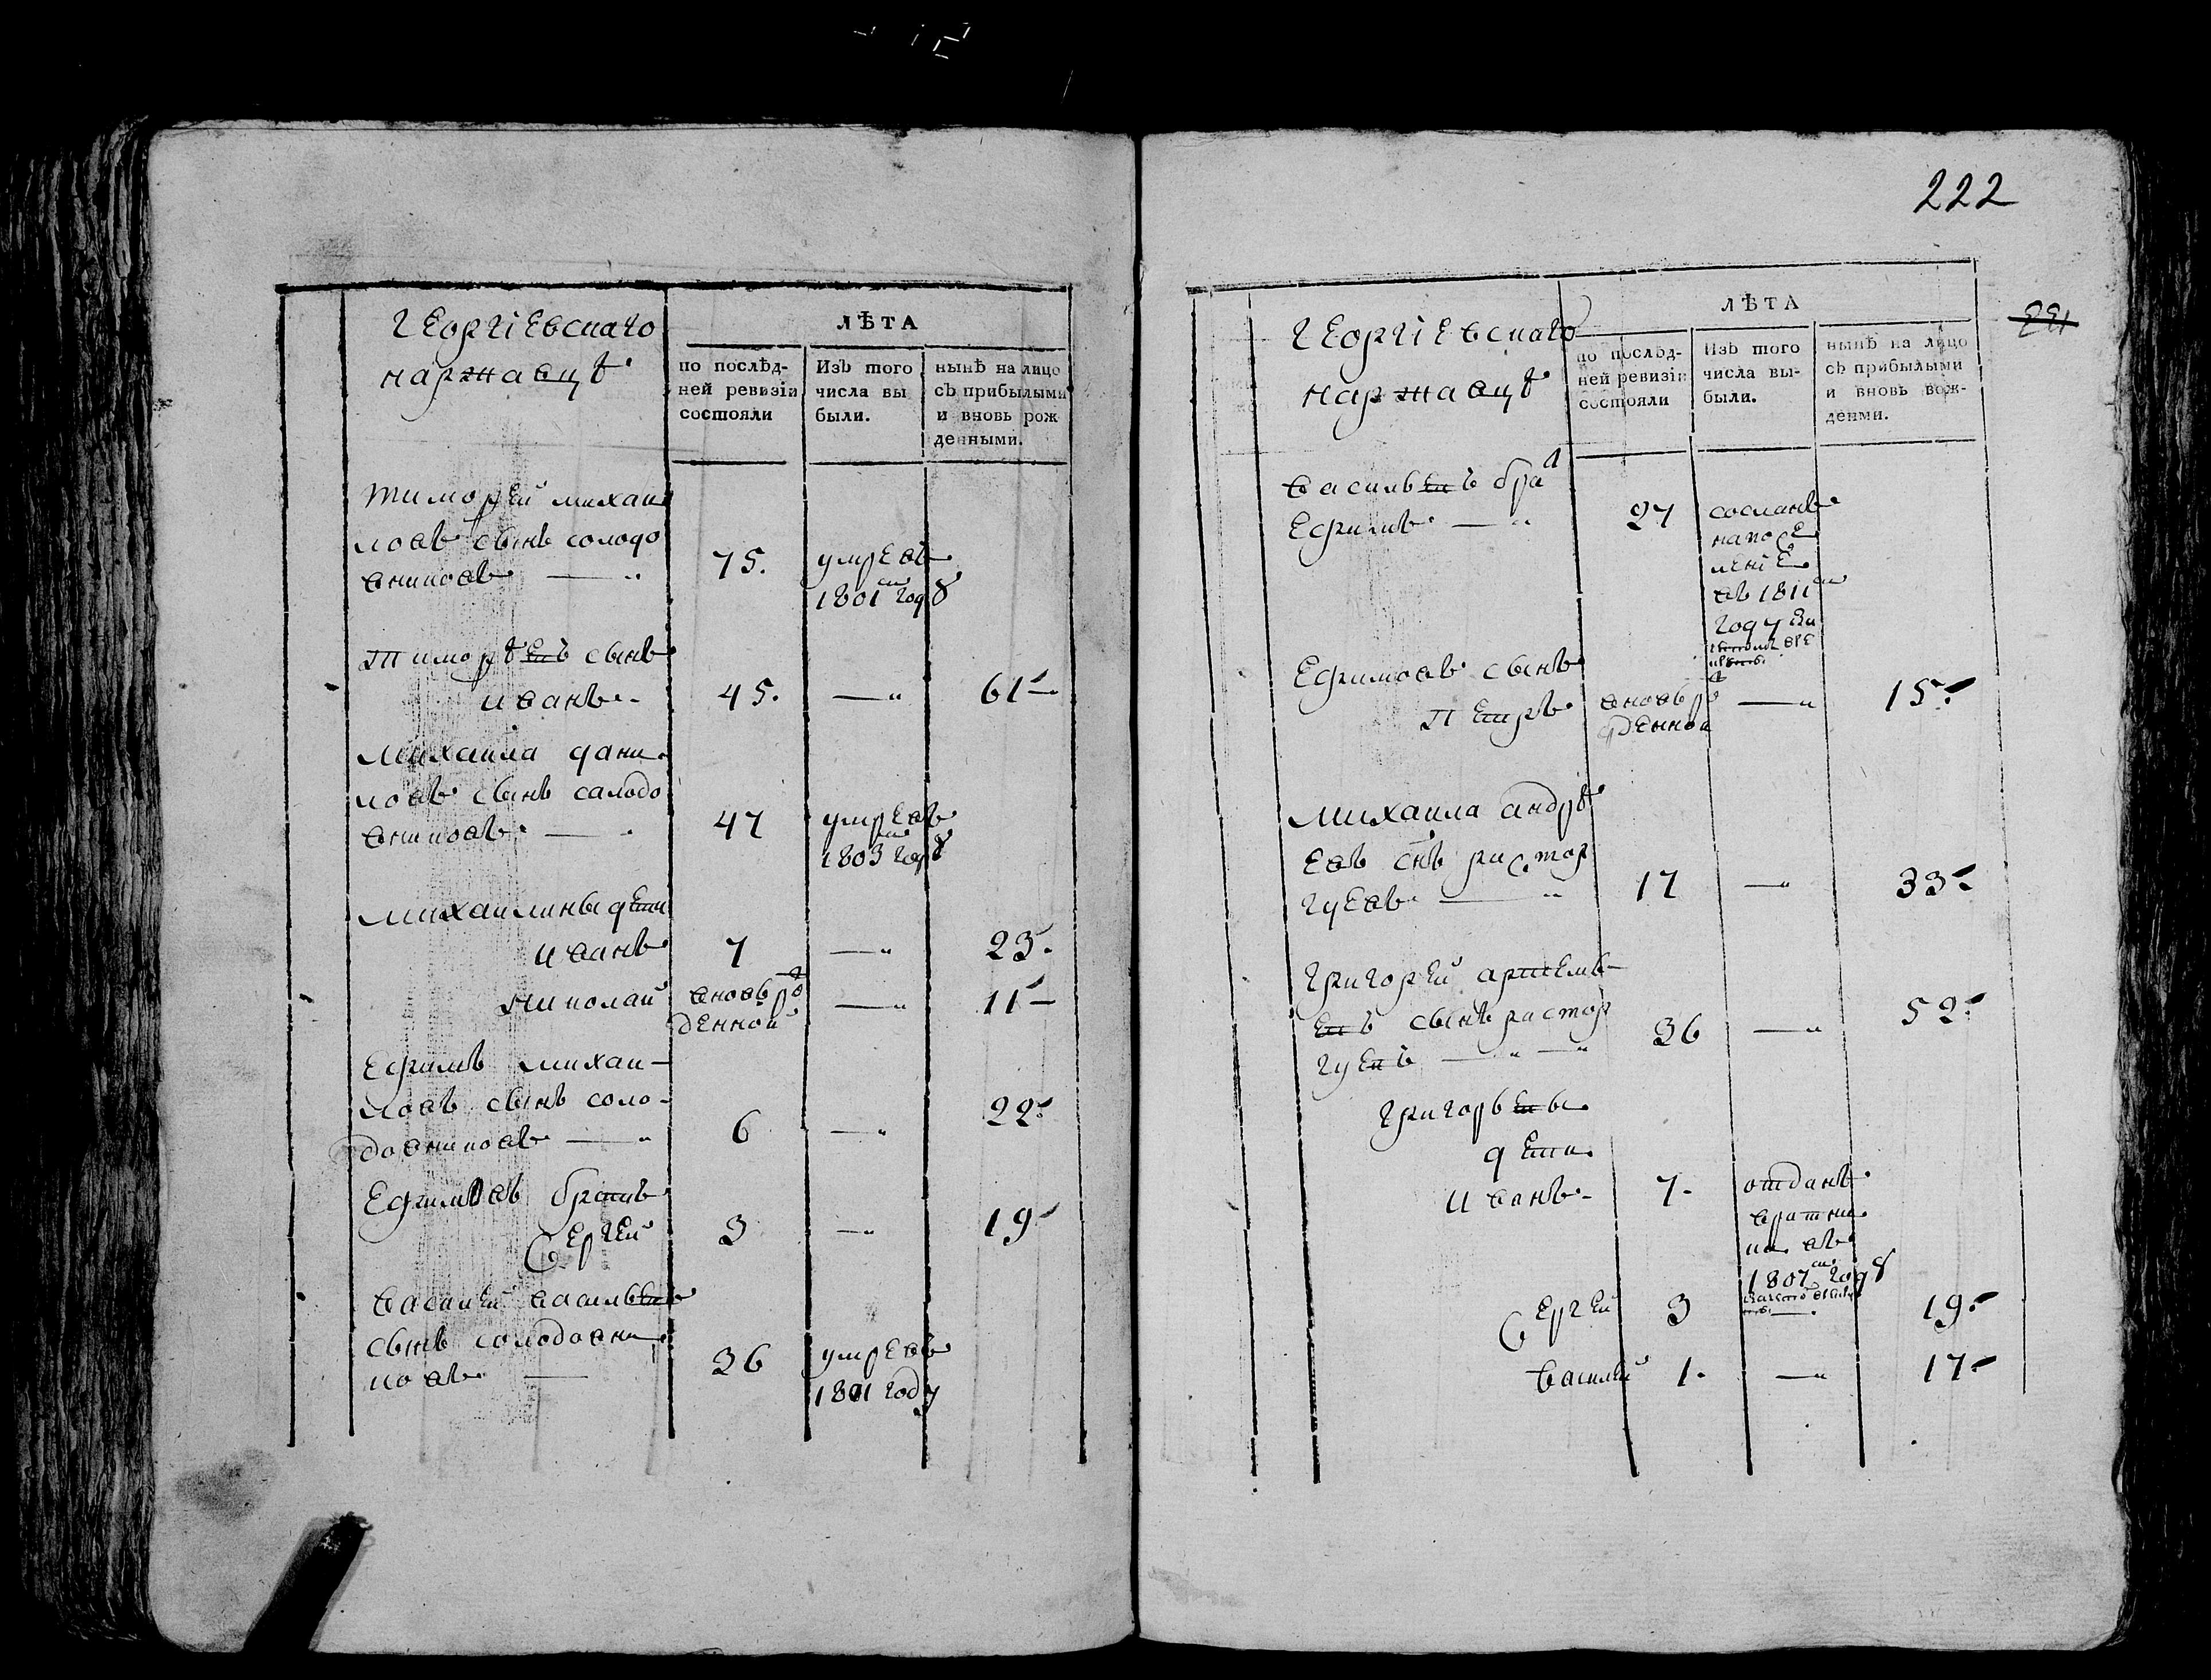 Георгіевскаго
Каржавцѣ
ЛѢТА
по послѣд-
ней ревизіи
состояли
Изъ того
числа вы
были.
нынѣ на лицо
съ прибылыми
и вновь рож
денными.
Тимофей михаи
ловъ сынъ солодо
вниковъ — 75. умревъ
1801го годѣ
Тимофѣевъ сынъ
иванъ - 45. — 61 —
михаила дани
ловъ сынъ салодо
вниковъ — 47 умревъ
1803го годѣ
михаилины дети
иванъ 7 — 23.
Николай вновь рож
денной — 11 —
Ефимъ михаи—
ловъ сынъ соло-
довниковъ — 6 — 22.
Ефимовъ братъ
Сергей 3 — 19
Василей васильевъ
сынъ солодовни
ковъ — 36 умревъ
1801 году
222
221
Георгіевскаго
Каржавцѣ
ЛѢТА
по послѣд-
ней ревизіи
состояли
Изъ того
числа вы-
были.
нынѣ на лицо
съ прибылыми
и вновь рож-
денми.
васильевъ брат
Ефимъ — 27 сосланъ
на посе
леніе
въ 1811м
году
Ефимовъ сынъ
Петръ вновь рож
денной — 15.
михаила андрѣ
евъ снъ растор
гуевъ — 17 — 33
григорей артемь—
евъ сынъ растор
гуевъ — — 36 — 52
григорьевы
дети
иванъ - 7. отданъ
вратни
ки въ
1807м годѣ
Сергей 3 — 19.
василей 1. — 17